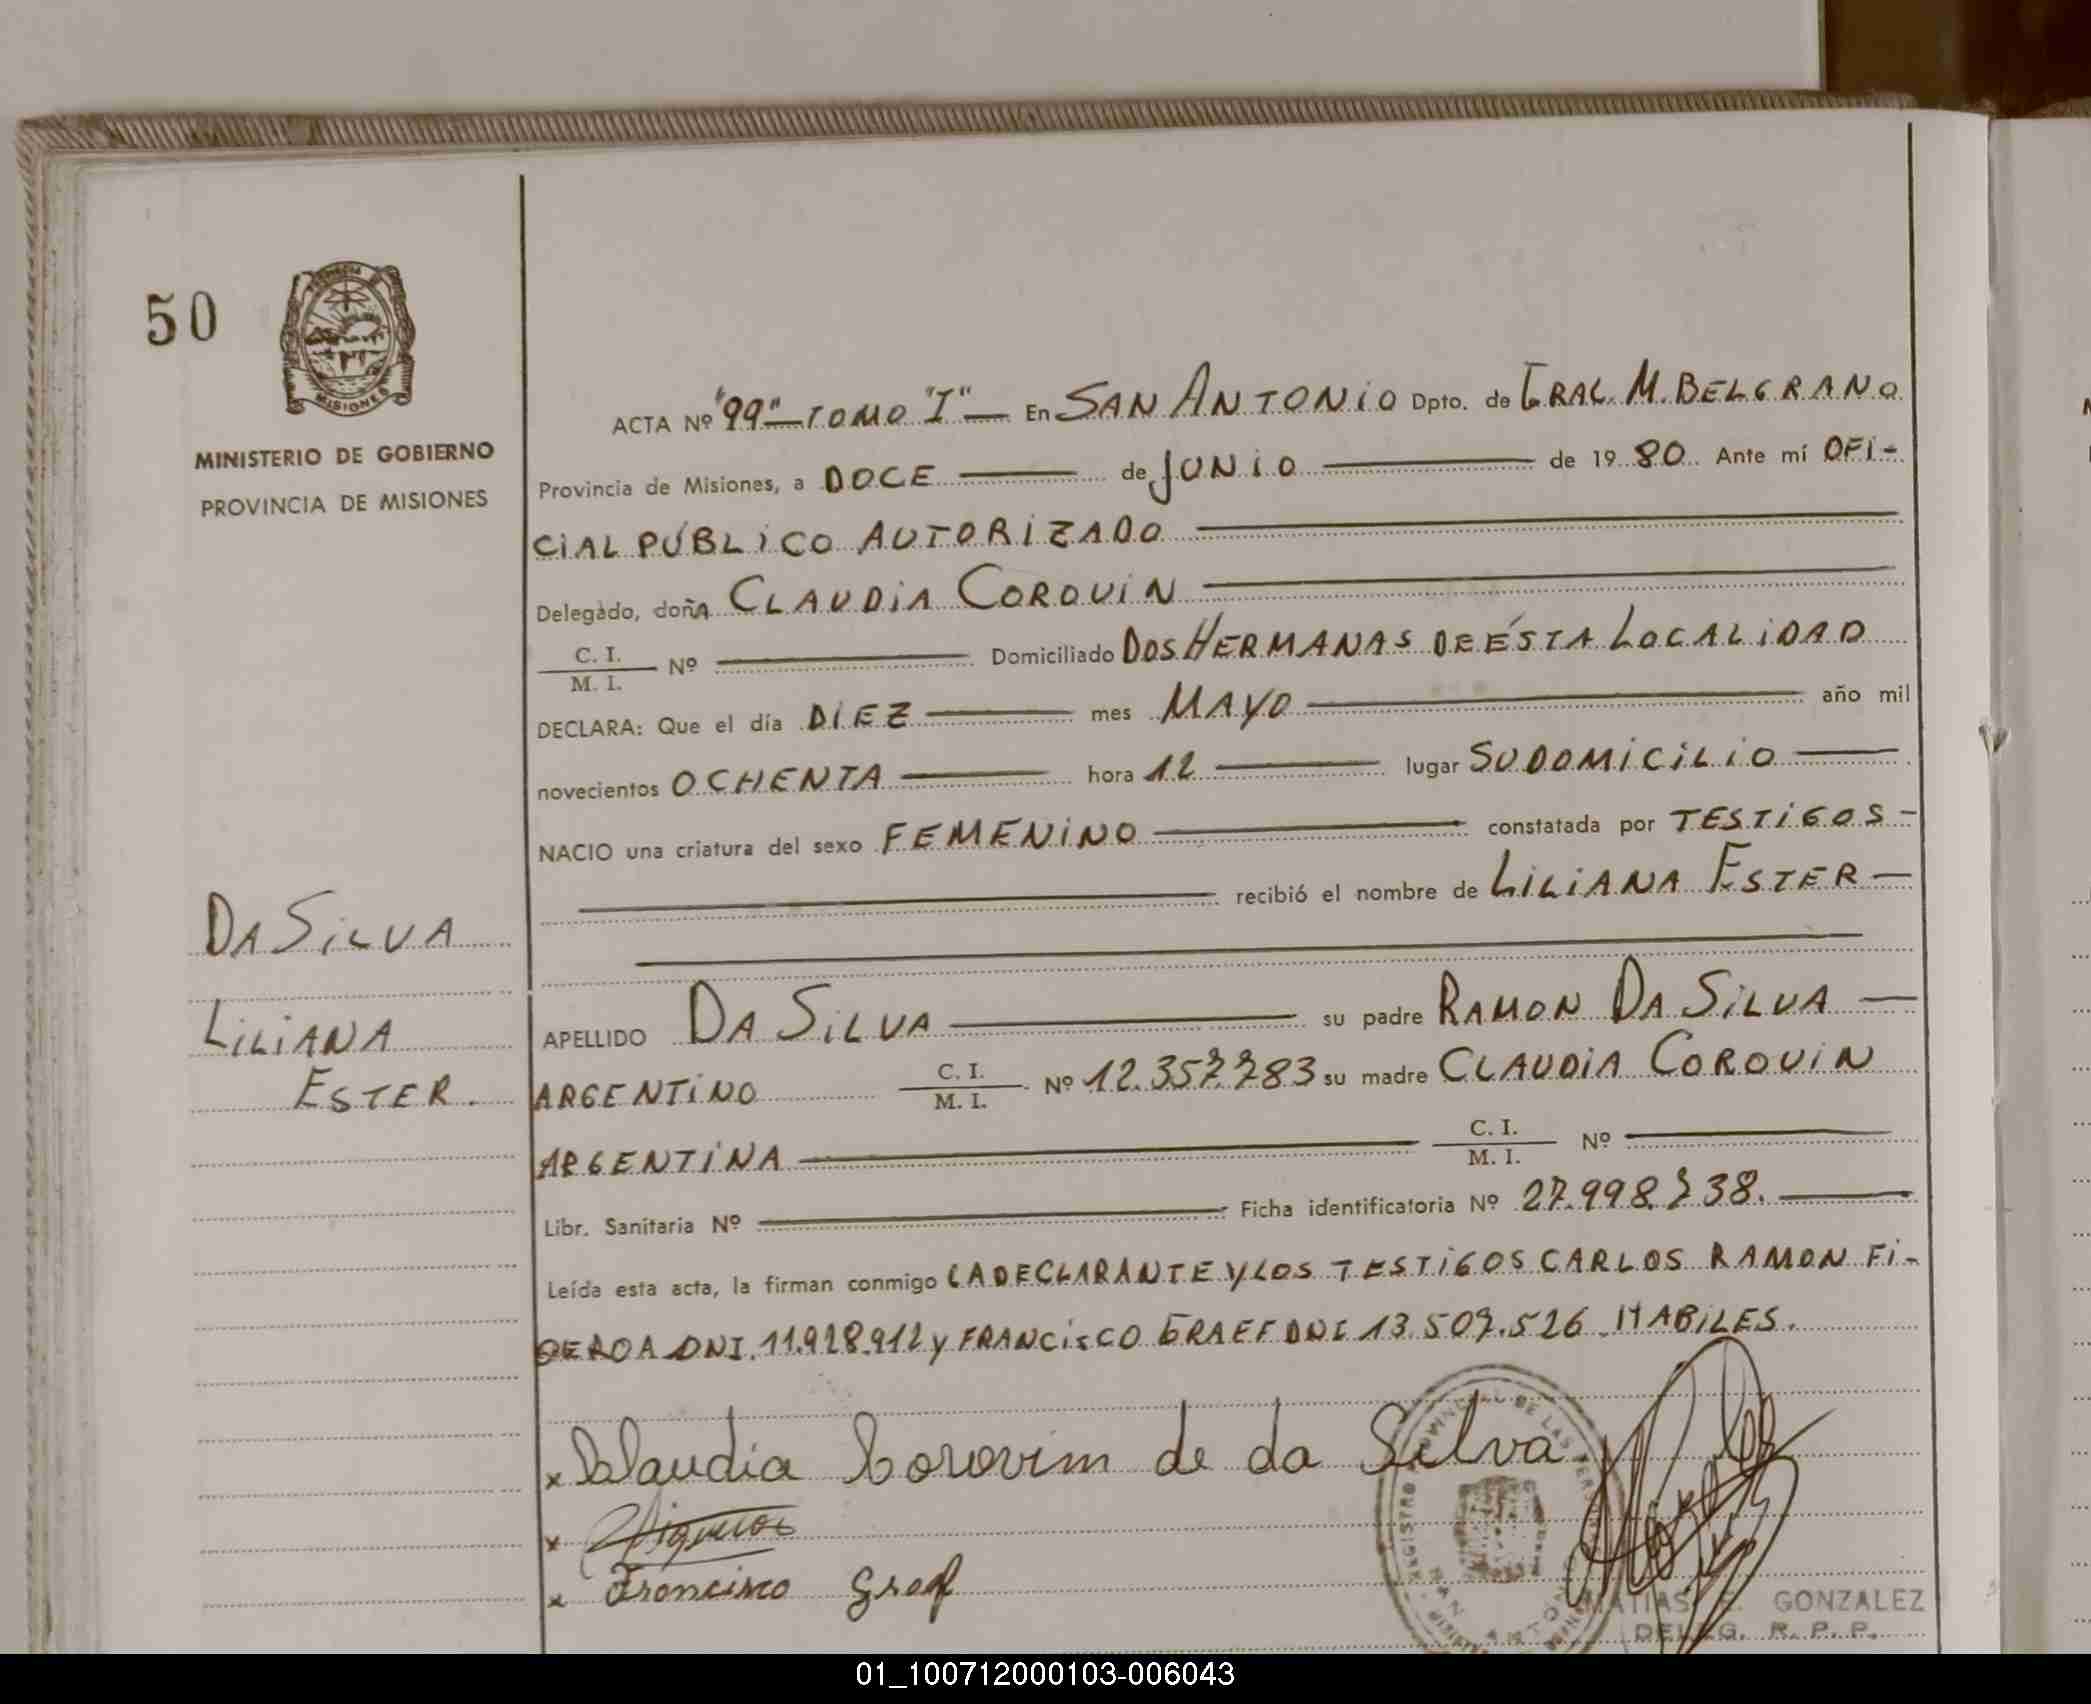 50
MISIONES
MINISTERIO DE GOBIERNO
PROVINCIA DE MISIONES
ACTA Nº "99"-TOMO "I" En SAN ANTONIO Dpto. de GRAL. M. BELGRANO
Provincia de Misiones, a DOCE de JUNIO de 1980. Ante mí OFI-
CIAL PÚBLICO AUTORIZADO
Delegado, doña CLAUDIA COROVIN
C. I.
M. I. Nº Domiciliado DOS HERMANAS DE ÉSTA LOCALIDAD
DECLARA: Que el día DIEZ mes MAYO año mil
novecientos OCHENTA hora 12 lugar SU DOMICILIO
NACIO una criatura del sexo FEMENINO constatada por TESTIGOS -
recibió el nombre de LILIANA ESTER
DA SILVA
LILIANA
ESTER.
APELLIDO DA SILVA su padre RAMON DA SILVA
ARGENTINO C. I. M. I. Nº 12.357.783 su madre CLAUDIA COROVIN
ARGENTINA C. I. M. I. Nº
Libr. Sanitaria Nº Ficha identificatoria Nº 27.998.738.
Leída esta acta, la firman conmigo LA DECLARANTE Y LOS TESTIGOS CARLOS RAMON FI-
DNI. 11.928.912 y FRANCISCO GRAEF DNI 13.507.526 HABILES.
x Claudia Corovim de da Silva
x
x Francisco Graef
GONZALEZ
DELEG. R. P. P.
01_100712000103-006043